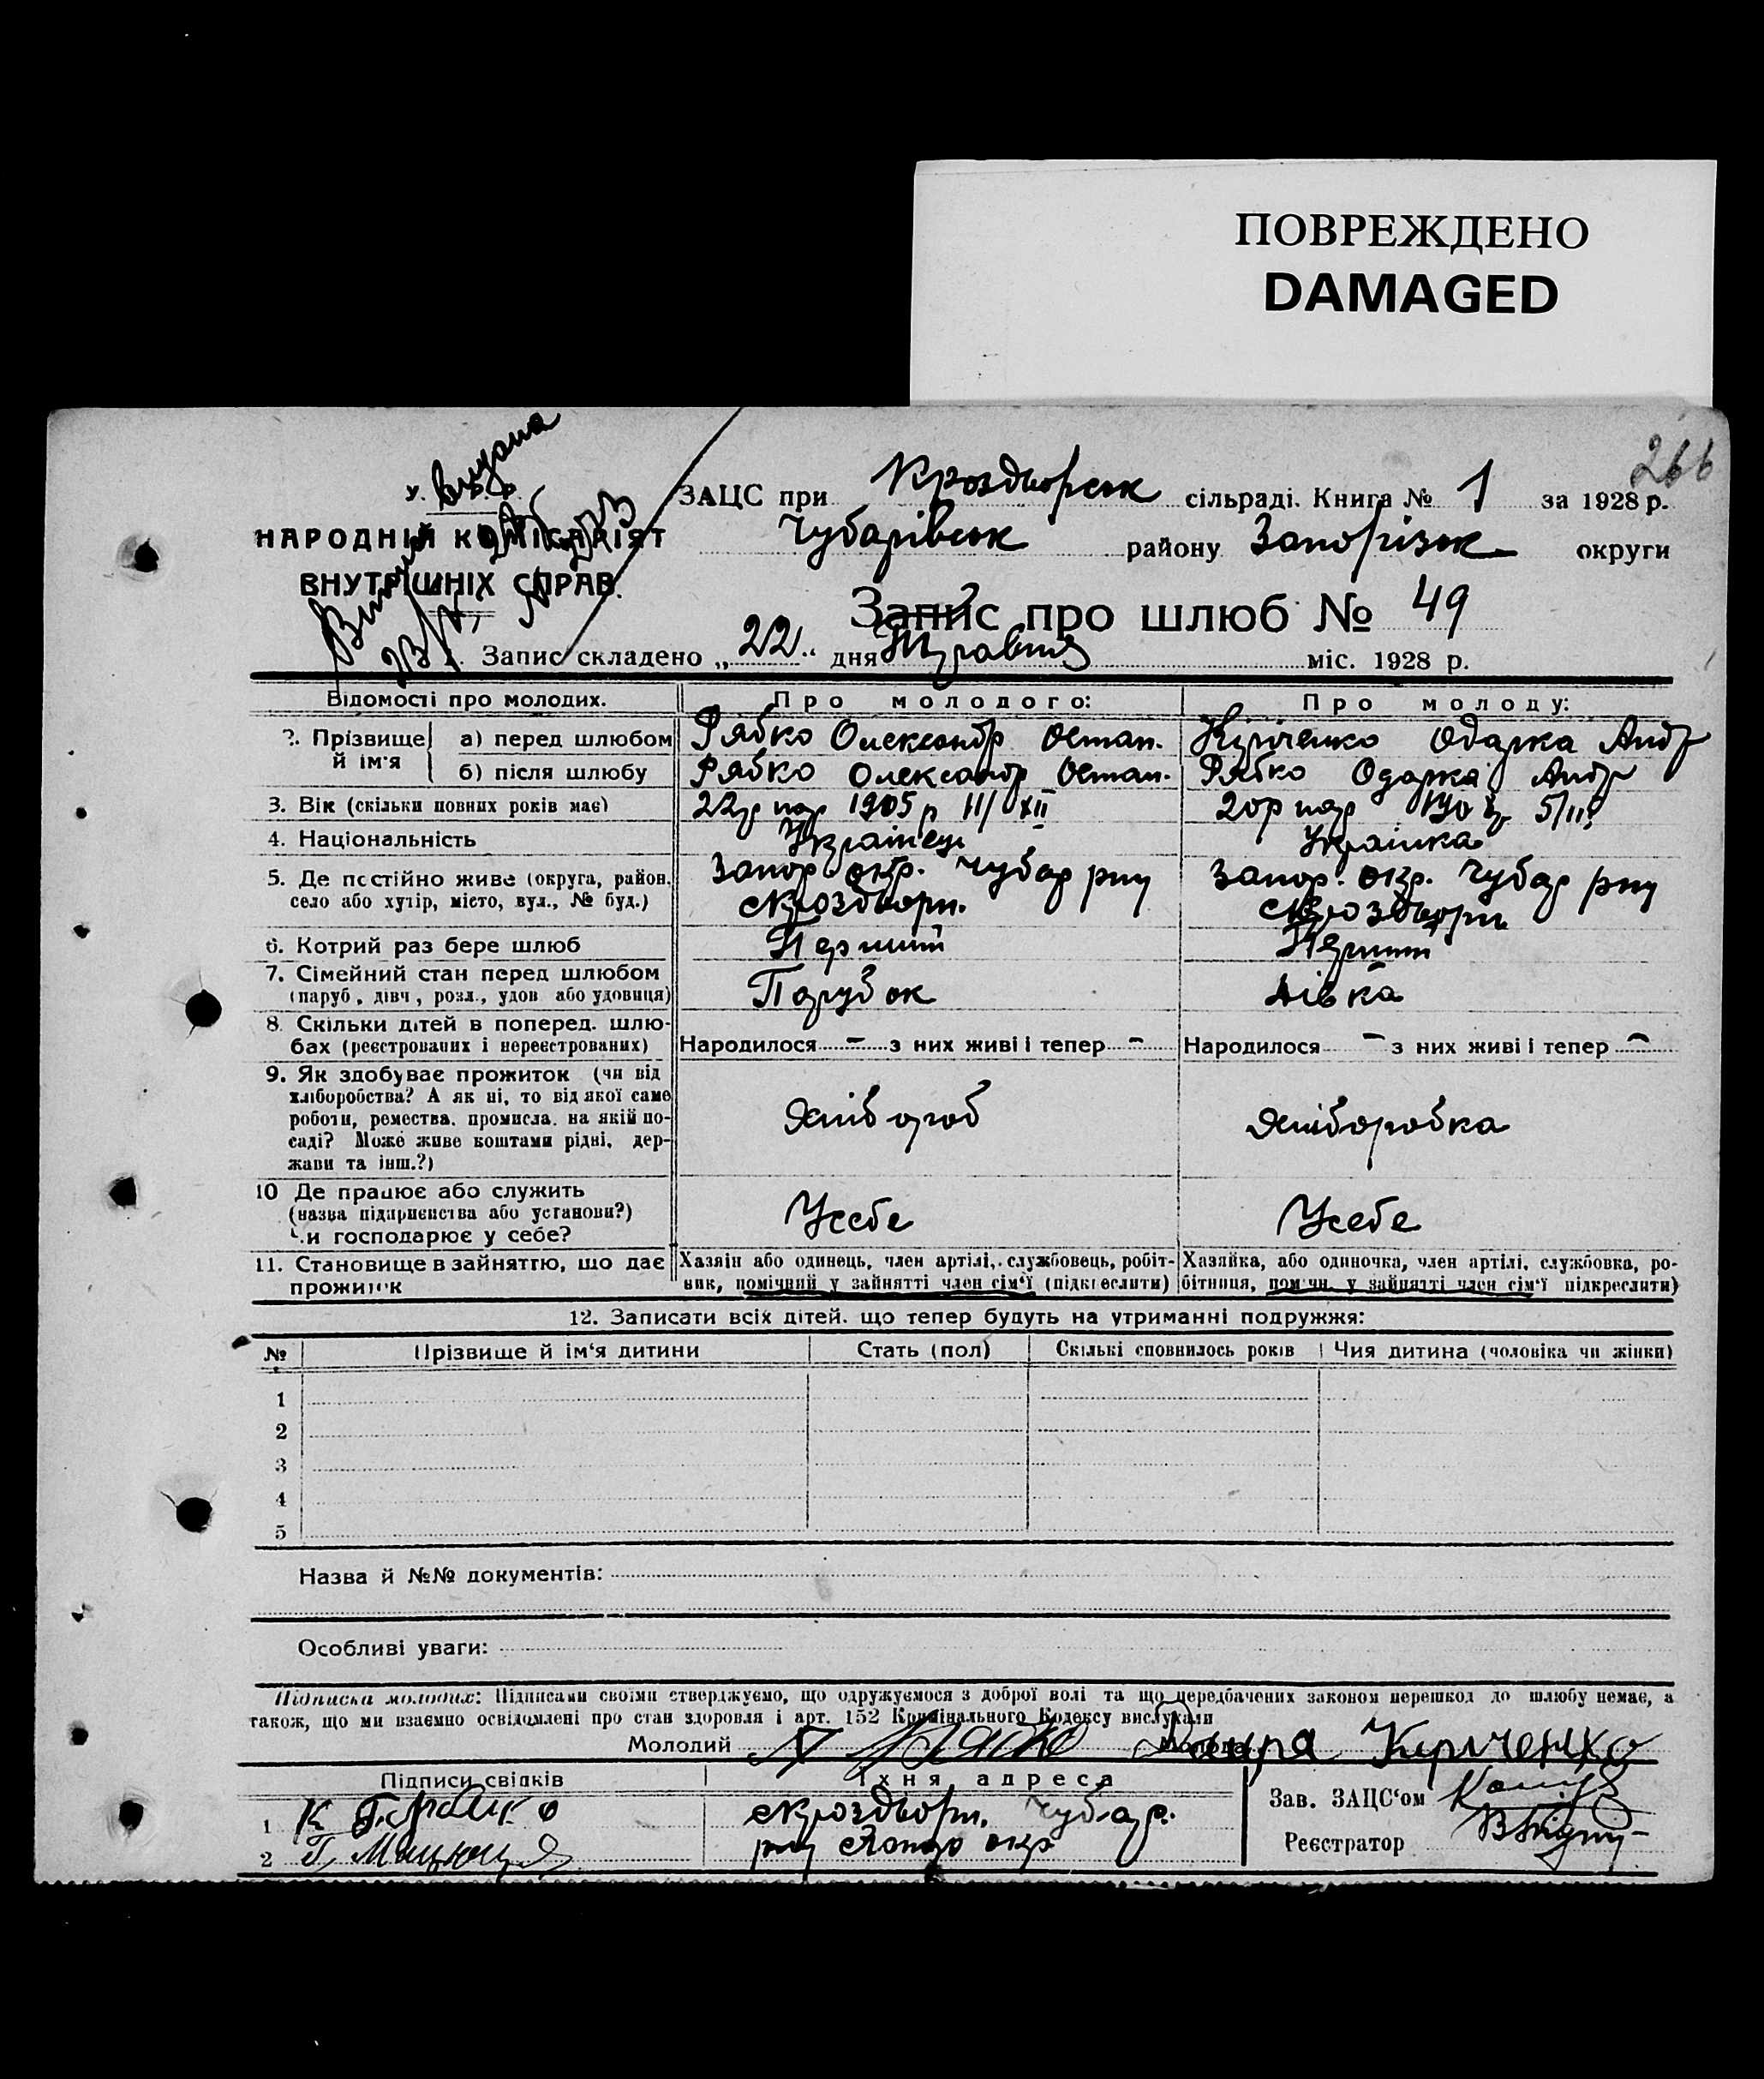 ПОВРЕЖДЕНО
DAMAGED
266
Видана
У. С. Р. Р.
НАРОДНІЙ КОМІСАРІЯТ
ВНУТРІШНІХ СПРАВ.
ЗАЦС при Кроздворськ сільраді. Книга № 1 за 1928 р.
Чубарівськ району Запорізьк округи
Запис про шлюб № 49
Запис складено „22“ дня Травня міс. 1928 р.
Відомості про молодих. Про молодого: Про молоду:
2. Прізвище й ім'я а) перед шлюбом Рябко Олександр Остап. Кіріченко Одарка Андр
б) після шлюбу Рябко Олександр Остап. Рябко Одарка Андр
3. Вік (скільки повних років має) 22р нар 1905 р 11/XII 20р нар 5/III
4. Національність Українець Українка
5. Де постійно живе (округа, район, Запор окр. Чубар рну Запор. окр. Чубар рну
село або хутір, місто, вул., № буд.) с Кроздворп. с Кроздворп
6. Котрий раз бере шлюб Перший Перший
7. Сімейний стан перед шлюбом Парубок Дівка
(паруб., дівч., розл., удов. або удовиця)
8. Скільки дітей в поперед. шлю-
бах (реєстрованих і нереєстрованих) Народилося – з них живі і тепер – Народилося – з них живі і тепер –
9. Як здобуває прожиток (чи від
хліборобства? А як ні, то від якої саме
роботи, ремества, промисла, на якій по- Хлібороб Хліборобка
саді? Може живе коштами рідні, дер-
жави та інш.?)
10 Де працює або служить
(назва підприємства або установи?) Усебе Усебе
Чи господарює у себе?
11. Становище в зайняттю, що дає Хазяїн або одинець, член артілі, службовець, робіт- Хазяйка, або одиночка, член артілі, службовка, ро-
прожиток ник, помічний у зайнятті член сім'ї (підкреслити) бітниця, помічн. у зайнятті член сім'ї підкреслити)
12. Записати всіх дітей, що тепер будуть на утриманні подружжя:
№ Прізвище й ім'я дитини Стать (пол) Скількі сповнилось років Чия дитина (чоловіка чи жінки)
1
2
3
4
5
Назва й №№ документів:
Особливі уваги:
Підписка молодих: Підписами своїми стверджуємо, що одружуємося з доброї волі та що передбачених законом перешкод до шлюбу немає, а
також, що ми взаємно освідомлені про стан здоровля і арт. 152 Кримінального Кодексу вислухали
Молодий Рябко Молода Кириченко
Підписи свідків Їхня адреса
1 К с Кроздворп. Чубар. Зав. ЗАЦС'ом
2 Г. рну окр Реєстратор